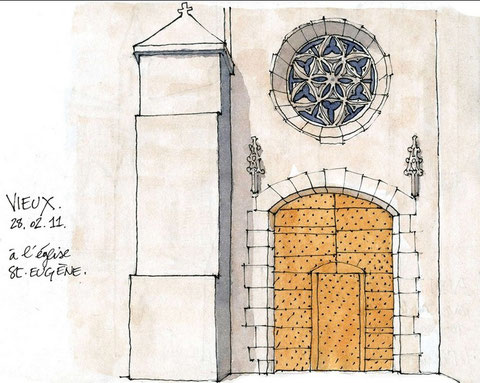 VIEUX.
28.02.11.
à l'église
St. EUGÈNE.